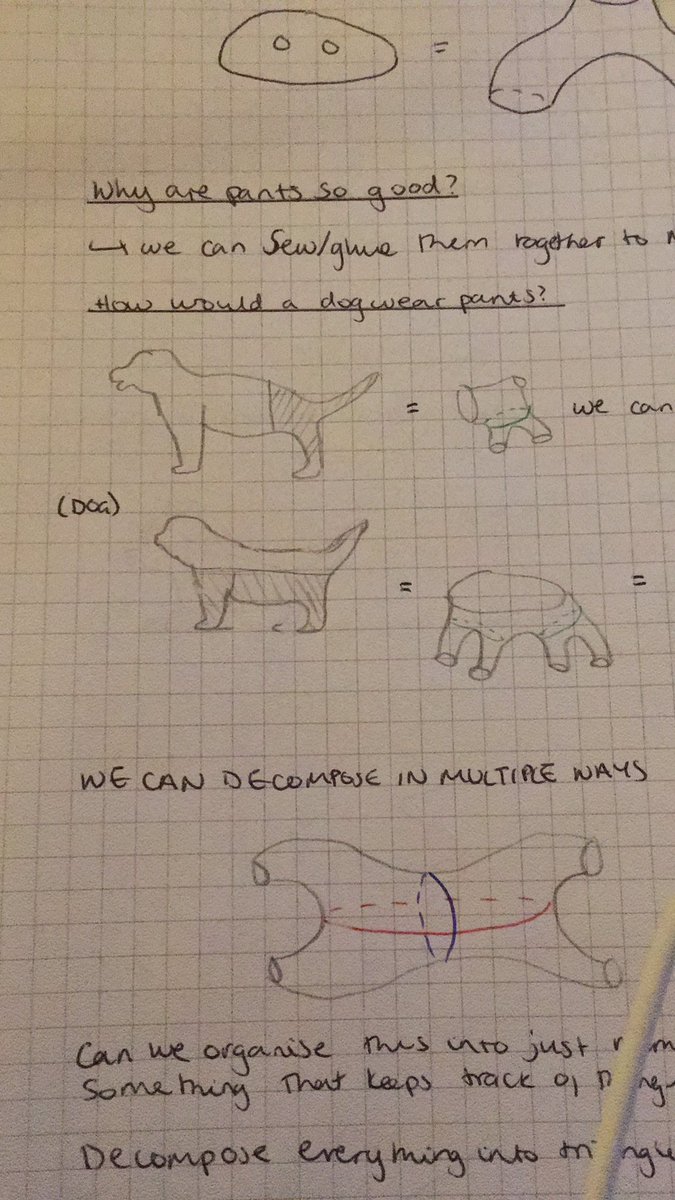 =
Why are pants so good?
↳ we can sew/glue them together to
How would a dog wear pants?
= we can
(DOG)
= =
WE CAN DECOMPOSE IN MULTIPLE WAYS
Can we organise this into just
Something that keeps track of
Decompose everything into